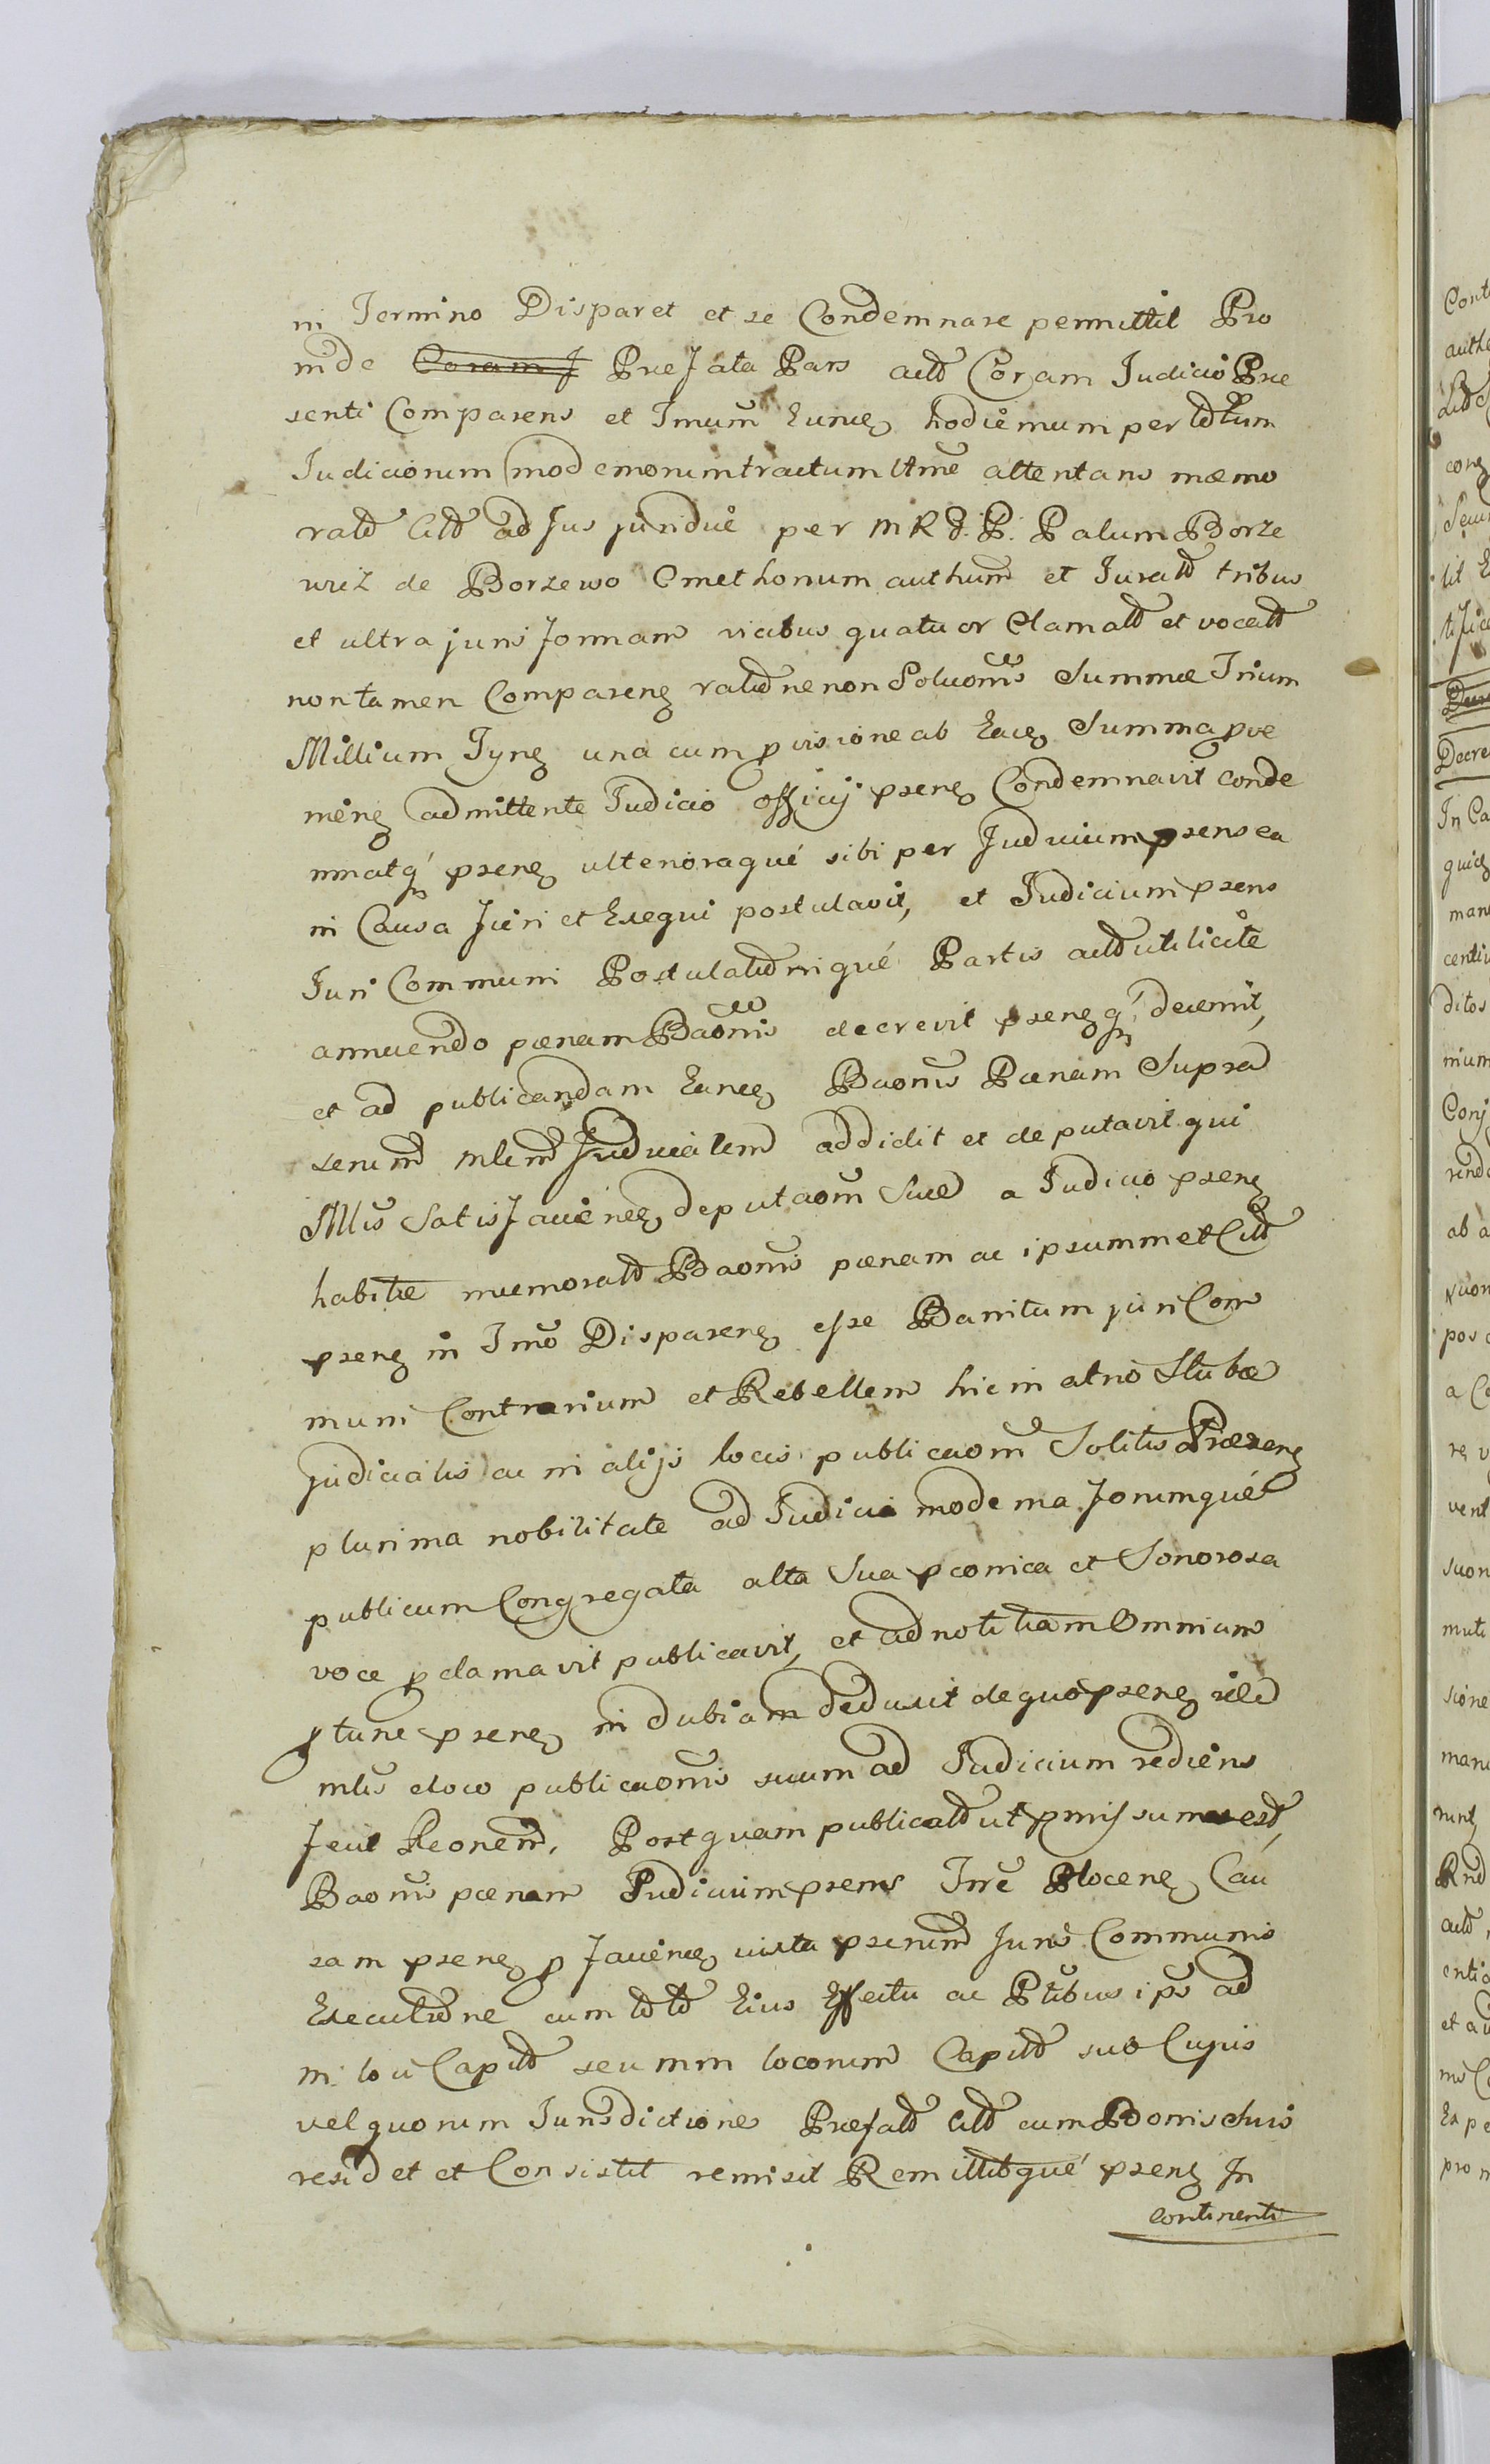 in Termino Disparet et se Condemnare permittit Pro
inde Coram J Præfata Pars actō Coram Judicio Præ
senti Comparens et Tmum Eunꝫ hodiernum per tōtum
Judiciorum modernorum tractum Ltme attentans mæmo
ratō Citō ad Jus juridice per MRD. P. Palum Borze
wicz de Borzewo Cmethonum authum et Juratō tribus
et ultra juris formam vicibus quatuor Clamatō et vocatō
non tamen Comparenꝫ ratōne non Soluonis Summæ Trium
Millium Tynꝫ una cum pvisione ab Eaꝫ Summa pve
menꝫ admittente Judicio officij psenꝫ Condemnavit conde
mnatq psenꝫ ulterioraque sibi per Judicium psens ea
in Causa fieri et Exequi postulavit, et Judicium psens
Juri Communi Postulatōnique Partis actō uti licite
annuendo pænam Baonis decrevit psenꝫ q decernit,
et ad publicandam Eanꝫ Baonis Pænam Supra
scrium mlem Judicialem addidit et deputavit qui
Mlis Satisfaciēnꝫ deputaom Suæ a Judicio psenꝫ
habitæ memoratō Baonis pænam ac ipsummet Citō
psenꝫ in Tmo Disparenꝫ esse Banitum juri Com
muni Contrarium et Rebellem hic in atrio Stubæ
judicialis ac in alijs locis publicaom Solitis Præsenꝫ
plurima nobilitate ad Judicia moderna forumque
publicum Congregata alta Sua pconica et Sonorosa
voce pclamavit publicavit, et ad notitiam Omnium
ptunc psenꝫ indubiam deduxit de quo psenꝫ idē
mlis eloco publicaonis suum ad Judicium rediens
fecit Reonem. Postquam publicatō ut pmissum est,
Baonis pænam Judicium psens Trre Plocenꝫ Cau
sam psenꝫ p facienꝫ iuxta pscrium Juris Communis
Executōne cum tōtō Eius Effectu ac Ptibus ips ad
m: loci Capitō seu mm locorum Capitō sub Cujus
vel quorum Jurisdictione Præfatō Citō cum Bonis Suis
residet et Consistit remisit Remittitque psenꝫ In
continenti